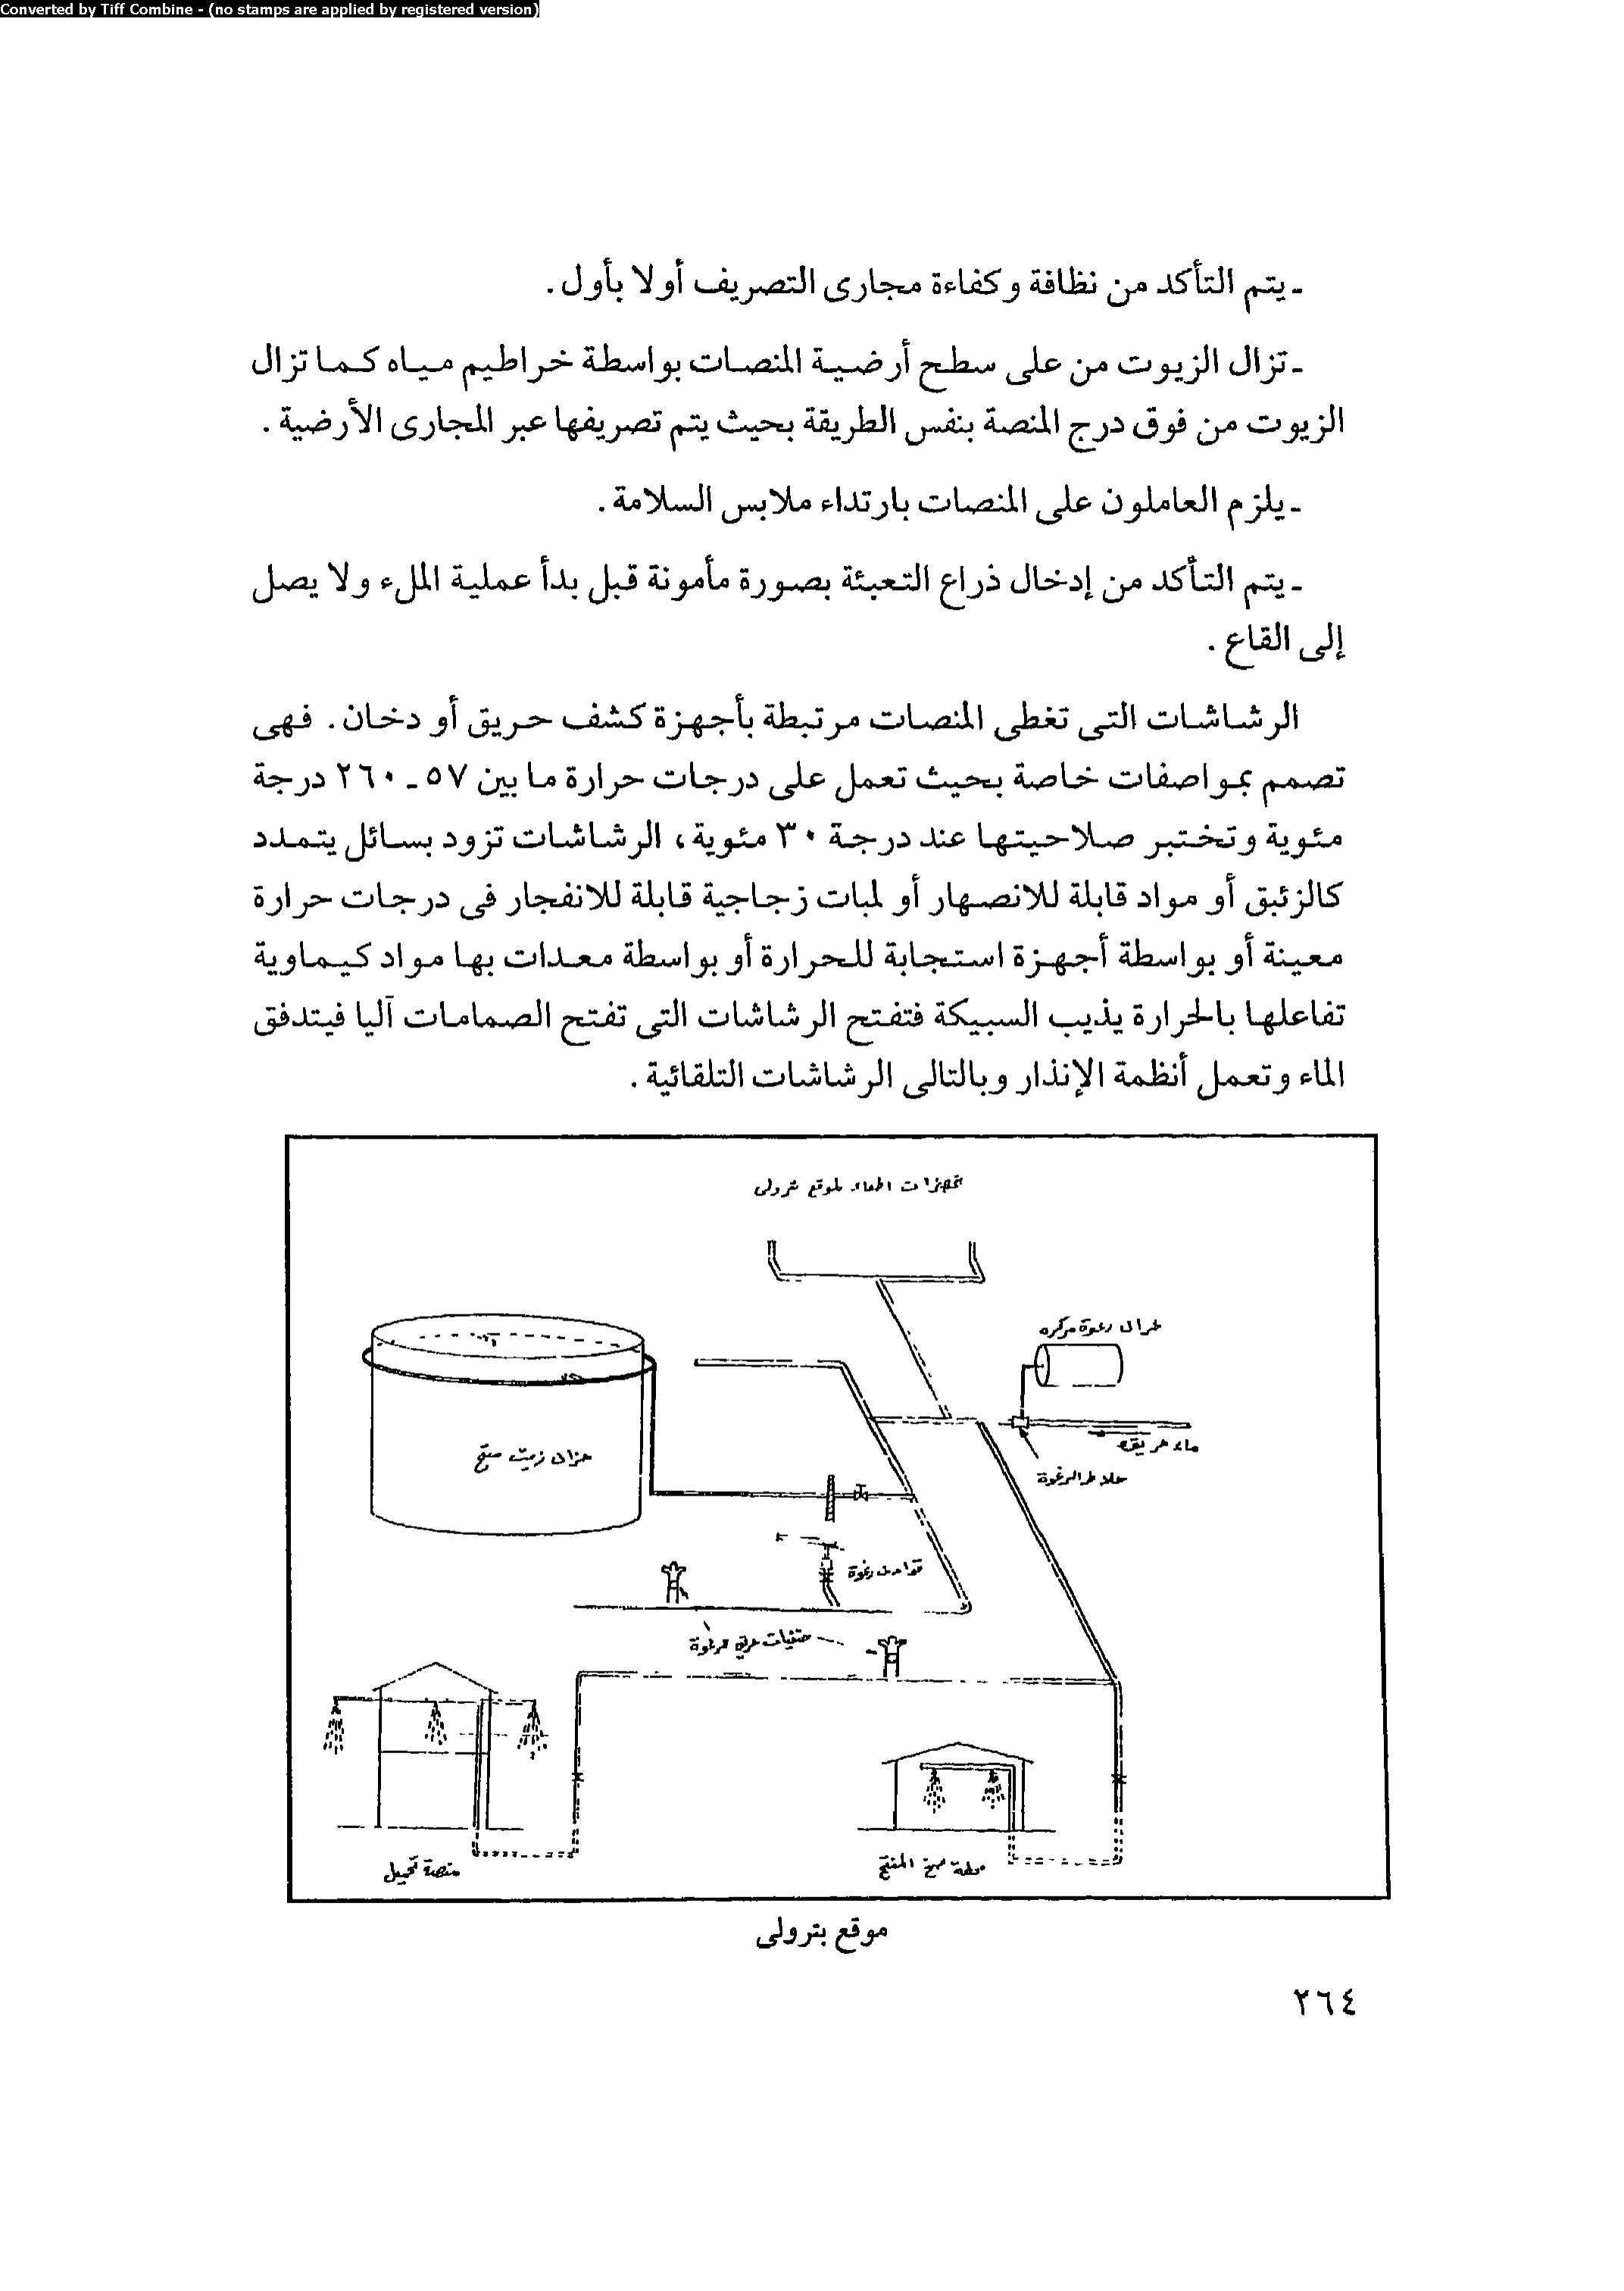 Converted by Tiff Combine - (no stamps are applied by registered version)
ـ يتم التأكد من نظافة وكفاءة مجارى التصريف أولا بأول .
ـ تزال الزيوت من على سطح أرضية المنصات بواسطة خراطيم مياه كما تزال
الزيوت من فوق درج المنصة بنفس الطريقة بحيث يتم تصريفها عبر المجارى الأرضية .
ـ يلزم العاملون على المنصات بارتداء ملابس السلامة .
ـ يتم التأكد من إدخال ذراع التعبئة بصورة مأمونة قبل بدأ عملية الملء ولا يصل
إلى القاع .
الرشاشات التى تغطى المنصات مرتبطة بأجهزة كشف حريق أو دخان . فهى
تصمم بمواصفات خاصة بحيث تعمل على درجات حرارة ما بين ٥٧ ـ ٢٦٠ درجة
مئوية وتختبر صلاحيتها عند درجة ٣٠ مئوية ، الرشاشات تزود بسائل يتمدد
كالزئبق أو مواد قابلة للانصهار أو لمبات زجاجية قابلة للانفجار فى درجات حرارة
معينة أو بواسطة أجهزة استجابة للحرارة أو بواسطة معدات بها مواد كيماوية
تفاعلها بالحرارة يذيب السبيكة فتفتح الرشاشات التى تفتح الصمامات آليا فيتدفق
الماء وتعمل أنظمة الإنذار وبالتالى الرشاشات التلقائية .
تجهيزات اطفاء لموقع بترولى
خزان رغوة مركزه
ماء حريق
خلاط الرغوة
خزان زيت منتج
قواذف رغوة
حنفيات حريق
منصة تحميل
محطة ضخ المنتج
موقع بترولى
٢٦٤